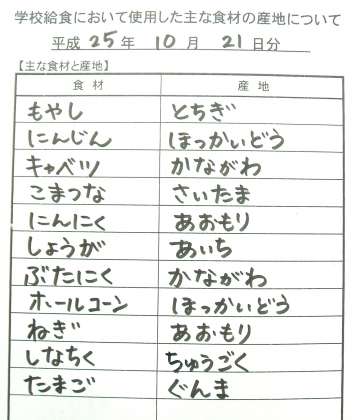 学校給食において使用した主な食材の産地について
平成 25 年 10 月 21 日分
【主な食材と産地】
食材 産地
もやし とちぎ
にんじん ほっかいどう
キャベツ かながわ
こまつな さいたま
にんにく あおもり
しょうが あいち
ぶたにく かながわ
ホールコーン ほっかいどう
ねぎ あおもり
しなちく ちゅうごく
たまご ぐんま